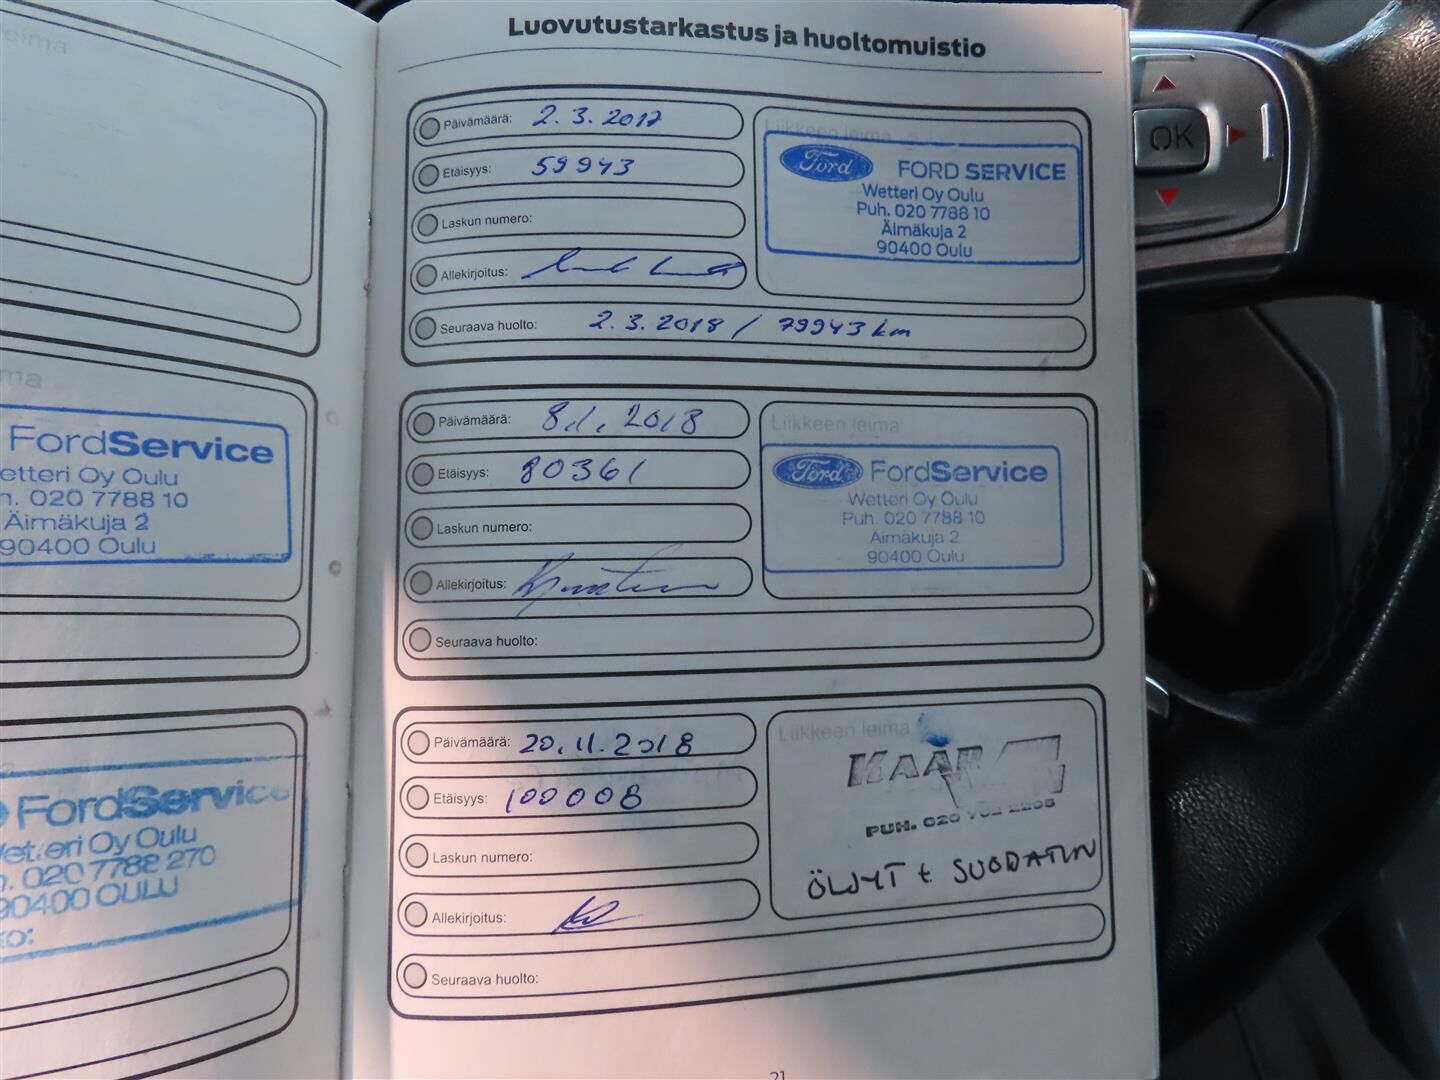 eima
ma
FordService
etteri Oy Oulu
n. 020 7788 10
Äimäkuja 2
90400 Oulu
FordService
Wetteri Oy Oulu
n. 020 7788 270
90400 OULU
ko:
Luovutustarkastus ja huoltomuistio
Päivämäärä: 2.3.2017
Etäisyys: 59943
Laskun numero:
Allekirjoitus:
Seuraava huolto: 2.3.2018 / 79943 km
Liikkeen leima
Ford FORD SERVICE
Wetteri Oy Oulu
Puh. 020 7788 10
Äimäkuja 2
90400 Oulu
Päivämäärä: 8.1.2018
Etäisyys: 80361
Laskun numero:
Allekirjoitus:
Seuraava huolto:
Liikkeen leima
Ford FordService
Wetteri Oy Oulu
Puh. 020 7788 10
Äimäkuja 2
90400 Oulu
Päivämäärä: 20.11.2018
Etäisyys: 100008
Laskun numero:
Allekirjoitus:
Seuraava huolto:
Liikkeen leima
PUH. 020
ÖLJYT + SUODATIN
21
OK